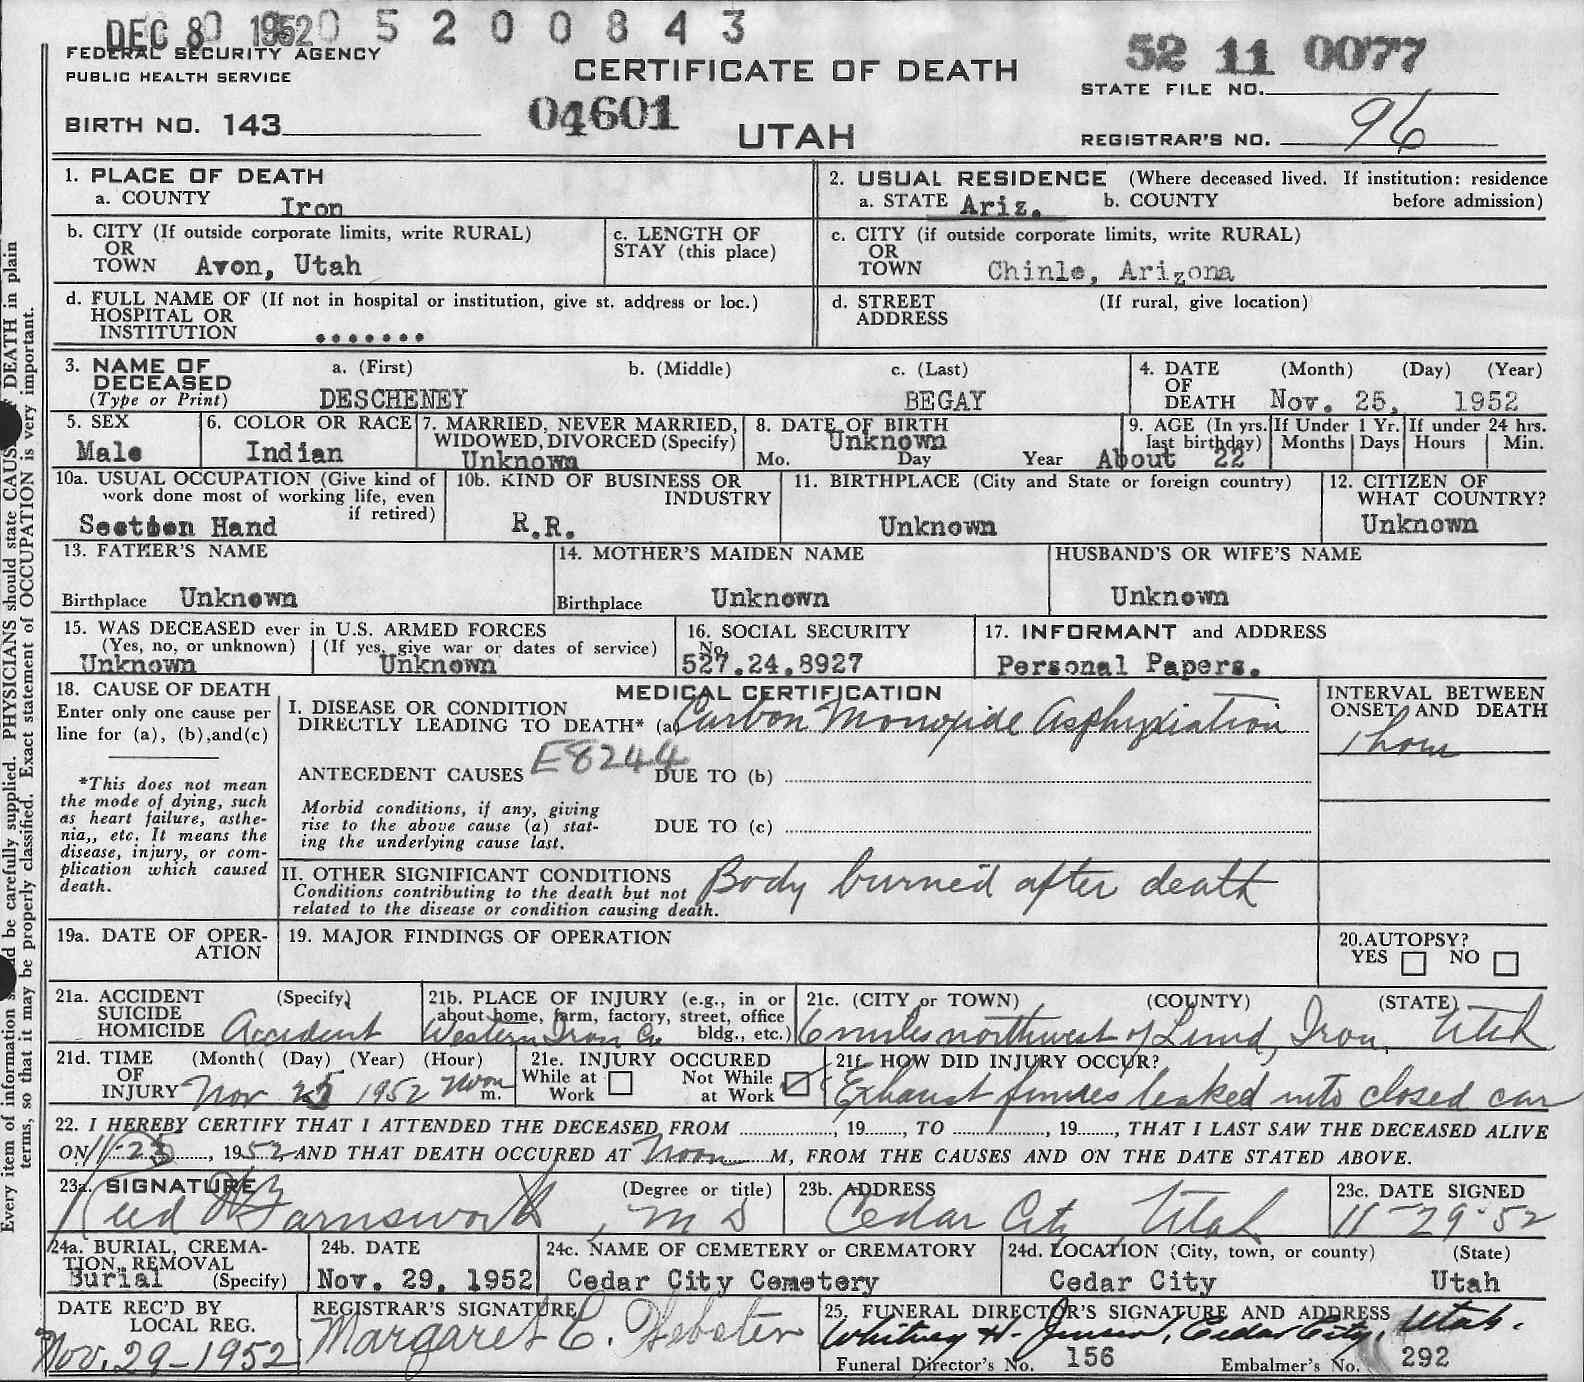 DEC 8 1952 0 5 2 0 0 8 4 3
FEDERAL SECURITY AGENCY
PUBLIC HEALTH SERVICE
CERTIFICATE OF DEATH
52 11 0077
STATE FILE NO.
BIRTH NO. 143
04601
UTAH
REGISTRAR'S NO. 96
1. PLACE OF DEATH
a. COUNTY Iron
2. USUAL RESIDENCE (Where deceased lived. If institution: residence before admission)
a. STATE Ariz. b. COUNTY
b. CITY (If outside corporate limits, write RURAL)
OR
TOWN Avon, Utah
c. LENGTH OF
STAY (this place)
c. CITY (if outside corporate limits, write RURAL)
OR
TOWN Chinle, Arizona
d. FULL NAME OF (If not in hospital or institution, give st. address or loc.)
HOSPITAL OR
INSTITUTION .......
d. STREET (If rural, give location)
ADDRESS
3. NAME OF DECEASED
(Type or Print)
a. (First) b. (Middle) c. (Last)
DESCHENEY BEGAY
4. DATE (Month) (Day) (Year)
OF
DEATH Nov. 25, 1952
5. SEX
Male
6. COLOR OR RACE
Indian
7. MARRIED, NEVER MARRIED,
WIDOWED, DIVORCED (Specify)
Unknown
8. DATE OF BIRTH
Unknown
Mo. Day Year
9. AGE (In yrs.
last birthday)
About 22
If Under 1 Yr.
Months Days
If under 24 hrs.
Hours Min.
10a. USUAL OCCUPATION (Give kind of
work done most of working life, even
if retired)
Section Hand
10b. KIND OF BUSINESS OR
INDUSTRY
R.R.
11. BIRTHPLACE (City and State or foreign country)
Unknown
12. CITIZEN OF
WHAT COUNTRY?
Unknown
13. FATHER'S NAME
Birthplace Unknown
14. MOTHER'S MAIDEN NAME
Birthplace Unknown
HUSBAND'S OR WIFE'S NAME
Unknown
15. WAS DECEASED ever in U.S. ARMED FORCES
(Yes, no, or unknown) (If yes, give war or dates of service)
Unknown Unknown
16. SOCIAL SECURITY
No.
527.24.8927
17. INFORMANT and ADDRESS
Personal Papers.
18. CAUSE OF DEATH
Enter only one cause per
line for (a), (b), and (c)
*This does not mean
the mode of dying, such
as heart failure, asthe-
nia,, etc. It means the
disease, injury, or com-
plication which caused
death.
MEDICAL CERTIFICATION
I. DISEASE OR CONDITION
DIRECTLY LEADING TO DEATH* (a) Carbon Monoxide Asphyxiation
E8244
ANTECEDENT CAUSES DUE TO (b)
Morbid conditions, if any, giving
rise to the above cause (a) stat-
ing the underlying cause last.
DUE TO (c)
INTERVAL BETWEEN
ONSET AND DEATH
1 hour
II. OTHER SIGNIFICANT CONDITIONS
Conditions contributing to the death but not
related to the disease or condition causing death.
Body burned after death
19a. DATE OF OPER-
ATION
19. MAJOR FINDINGS OF OPERATION
20. AUTOPSY?
YES NO
21a. ACCIDENT (Specify)
SUICIDE
HOMICIDE Accident
21b. PLACE OF INJURY (e.g., in or
about home, farm, factory, street, office
bldg., etc.)
Western Iron Co.
21c. (CITY or TOWN) (COUNTY) (STATE)
6 miles northwest of Lund, Iron, Utah
21d. TIME (Month( (Day) (Year) (Hour)
OF
INJURY Nov 25 1952 Noon m.
21e. INJURY OCCURED
While at Work Not While at Work
21f. HOW DID INJURY OCCUR?
Exhaust fumes leaked into closed car
22. I HEREBY CERTIFY THAT I ATTENDED THE DECEASED FROM , 19 , TO , 19 , THAT I LAST SAW THE DECEASED ALIVE
ON 11-25, 1952, AND THAT DEATH OCCURED AT Noon M, FROM THE CAUSES AND ON THE DATE STATED ABOVE.
23a. SIGNATURE (Degree or title)
Reed W Farnsworth, M D
23b. ADDRESS
Cedar City, Utah
23c. DATE SIGNED
11-29-52
24a. BURIAL, CREMA-
TION, REMOVAL
Burial (Specify)
24b. DATE
Nov. 29, 1952
24c. NAME OF CEMETERY or CREMATORY
Cedar City Cemetery
24d. LOCATION (City, town, or county) (State)
Cedar City Utah
DATE REC'D BY
LOCAL REG.
Nov. 29-1952
REGISTRAR'S SIGNATURE
Margaret C. Webster
25. FUNERAL DIRECTOR'S SIGNATURE AND ADDRESS
Whitney H. Jensen, Cedar City, Utah.
Funeral Director's No. 156 Embalmer's No. 292
Every item of information be carefully supplied. PHYSICIANS should state CAUSE DEATH in plain
terms, so that it may be properly classified. Exact statement of OCCUPATION is very important.